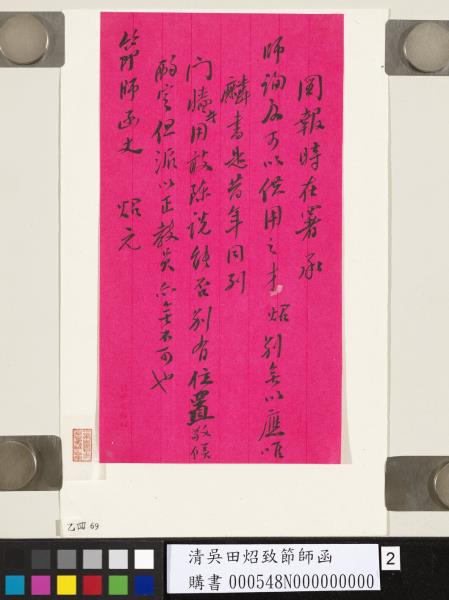 圖報時在署承
師詢及可以供用之才炤別無以應唯
麟書是昔年同列
门牆用敢陈説能否别有位置敬候
酌定但派以正教員亦無不可也
節師函丈 炤
乙四 69
清吳田炤致節師函
購書 000548N000000000
2